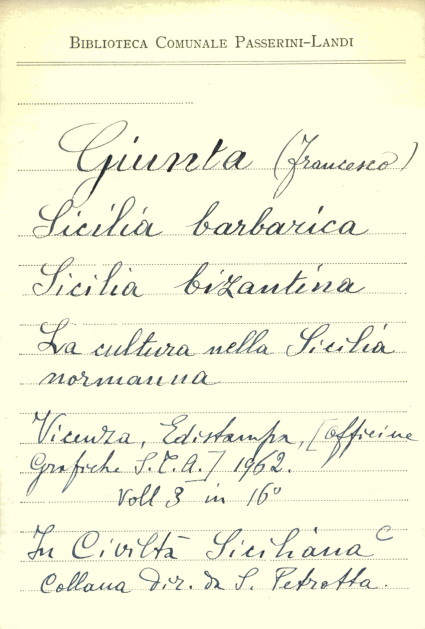 BIBLIOTECA COMUNALE PASSERINI-LANDI
Giunta (Francesco)
Sicilia barbarica
Sicilia bizantina
La cultura nella Sicilia
normanna
Vicenza, Edistampa, [Officine
Grafiche S.T.A.] 1962.
Voll 3 in 16°
In Civiltà Siciliana C
Collana dir. da S. Petrotta.